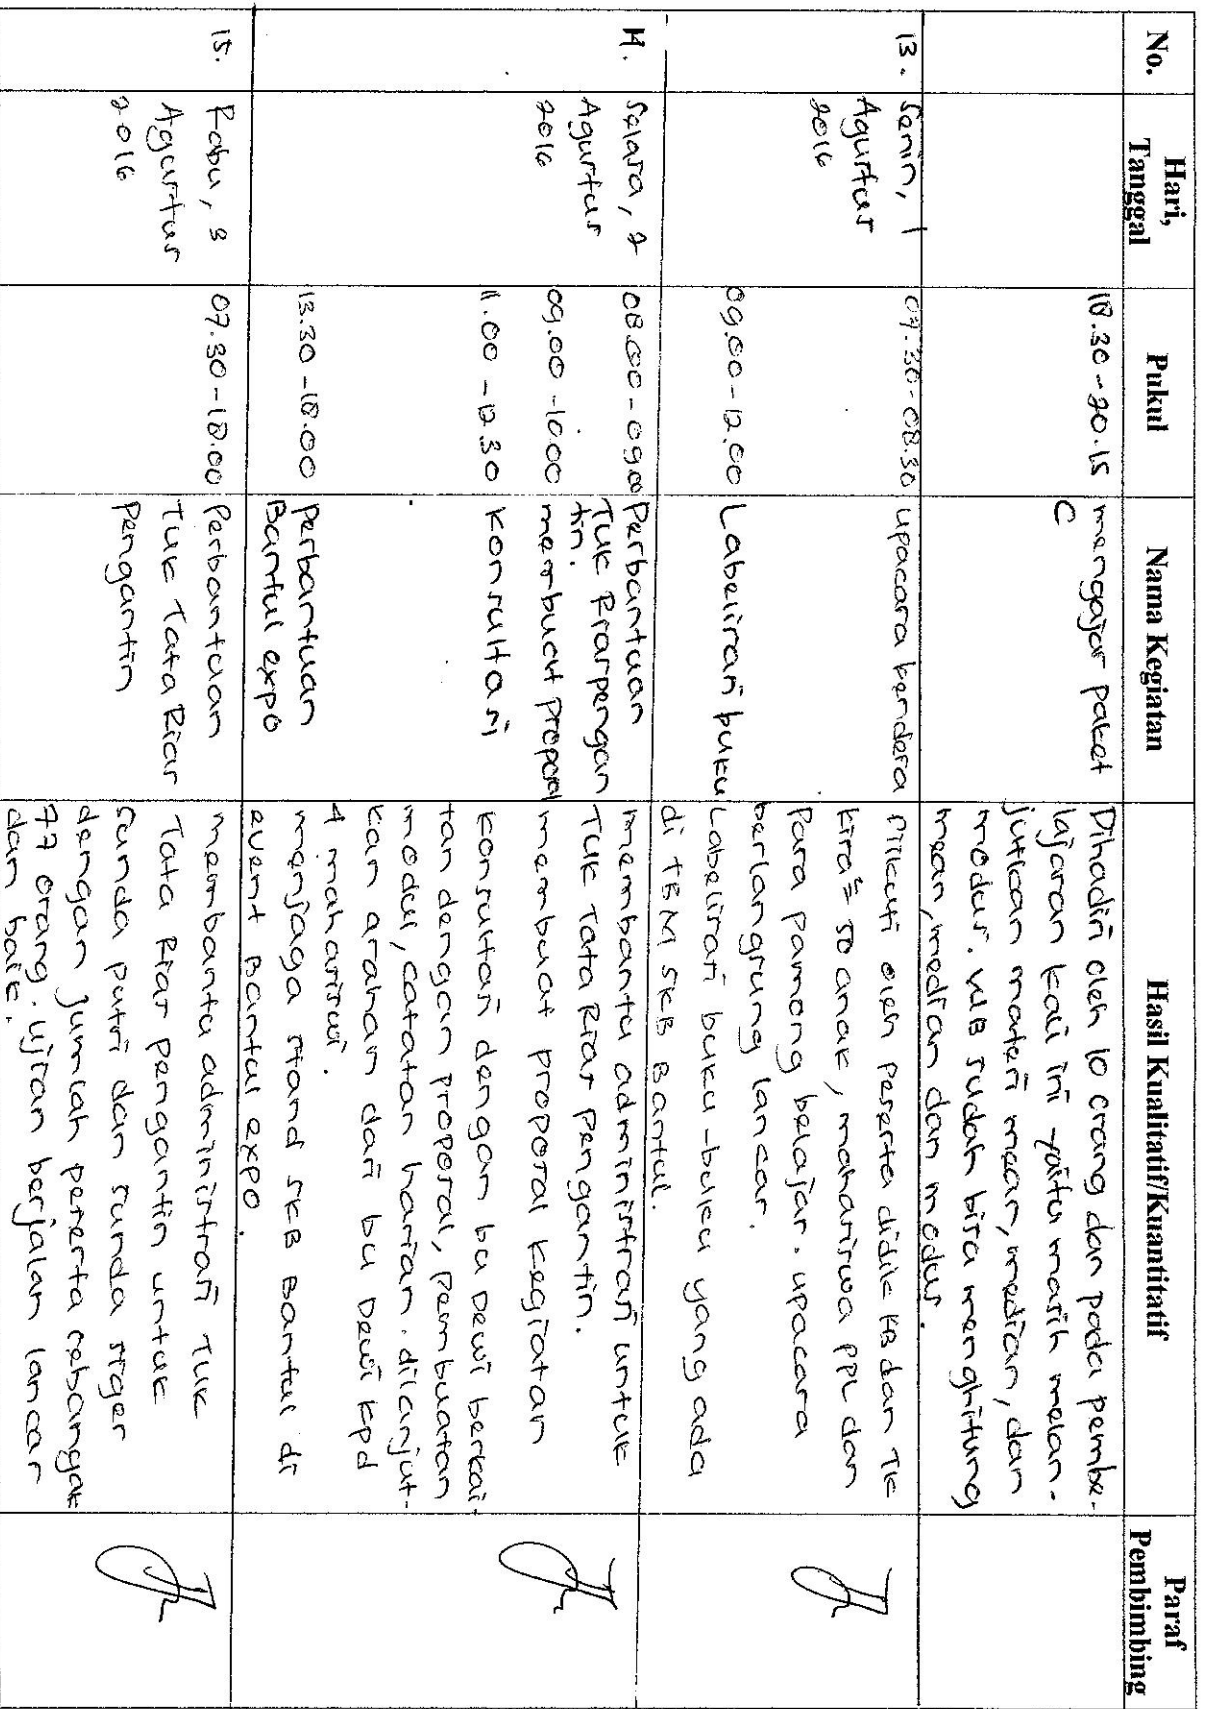 No. Hari, Tanggal Pukul Nama Kegiatan Hasil Kualitatif/Kuantitatif Paraf Pembimbing
18.30 - 20.15
mengajar paket
C
Dihadiri oleh 10 orang dan pada pembe-
lajaran kali ini yaitu masih melan-
jutkan materi mean, median, dan
modus. WB sudah bisa menghitung
mean, median dan modus.
13.
Senin, 1
Agustus
2016
07.30 - 08.30
upacara bendera
diikuti oleh peserta didik KB dan TK
kira² 50 anak, mahasiswa PPL dan
para pamong belajar. upacara
berlangsung lancar.
09.00 - 12.00
Labelisasi buku
Labelisasi buku-buku yang ada
di TBM SKB Bantul.
14.
Selasa, 2
Agustus
2016
08.00 - 09.00
Perbantuan
TUK Riaspengan
tin.
membantu administrasi untuk
TUK Tata Rias Pengantin.
09.00 - 10.00
membuat proposal
membuat proposal kegiatan
11.00 - 12.30
Konsultasi
Konsultasi dengan bu Dewi berkai-
tan dengan proposal, pembuatan
modul, catatan harian. dilanjut-
kan arahan dari bu Dewi kpd
4 mahasiswi.
13.30 - 18.00
perbantuan
Bantul expo
menjaga stand SKB Bantul di
event Bantul expo.
15.
Rabu, 3
Agustus
2016
07.30 - 18.00
Perbantuan
TUK Tata Rias
Pengantin
membantu administrasi TUK
Tata Rias pengantin untuk
sunda putri dan sunda siger
dengan jumlah peserta sebanyak
77 orang. Ujian berjalan lancar
dan baik.